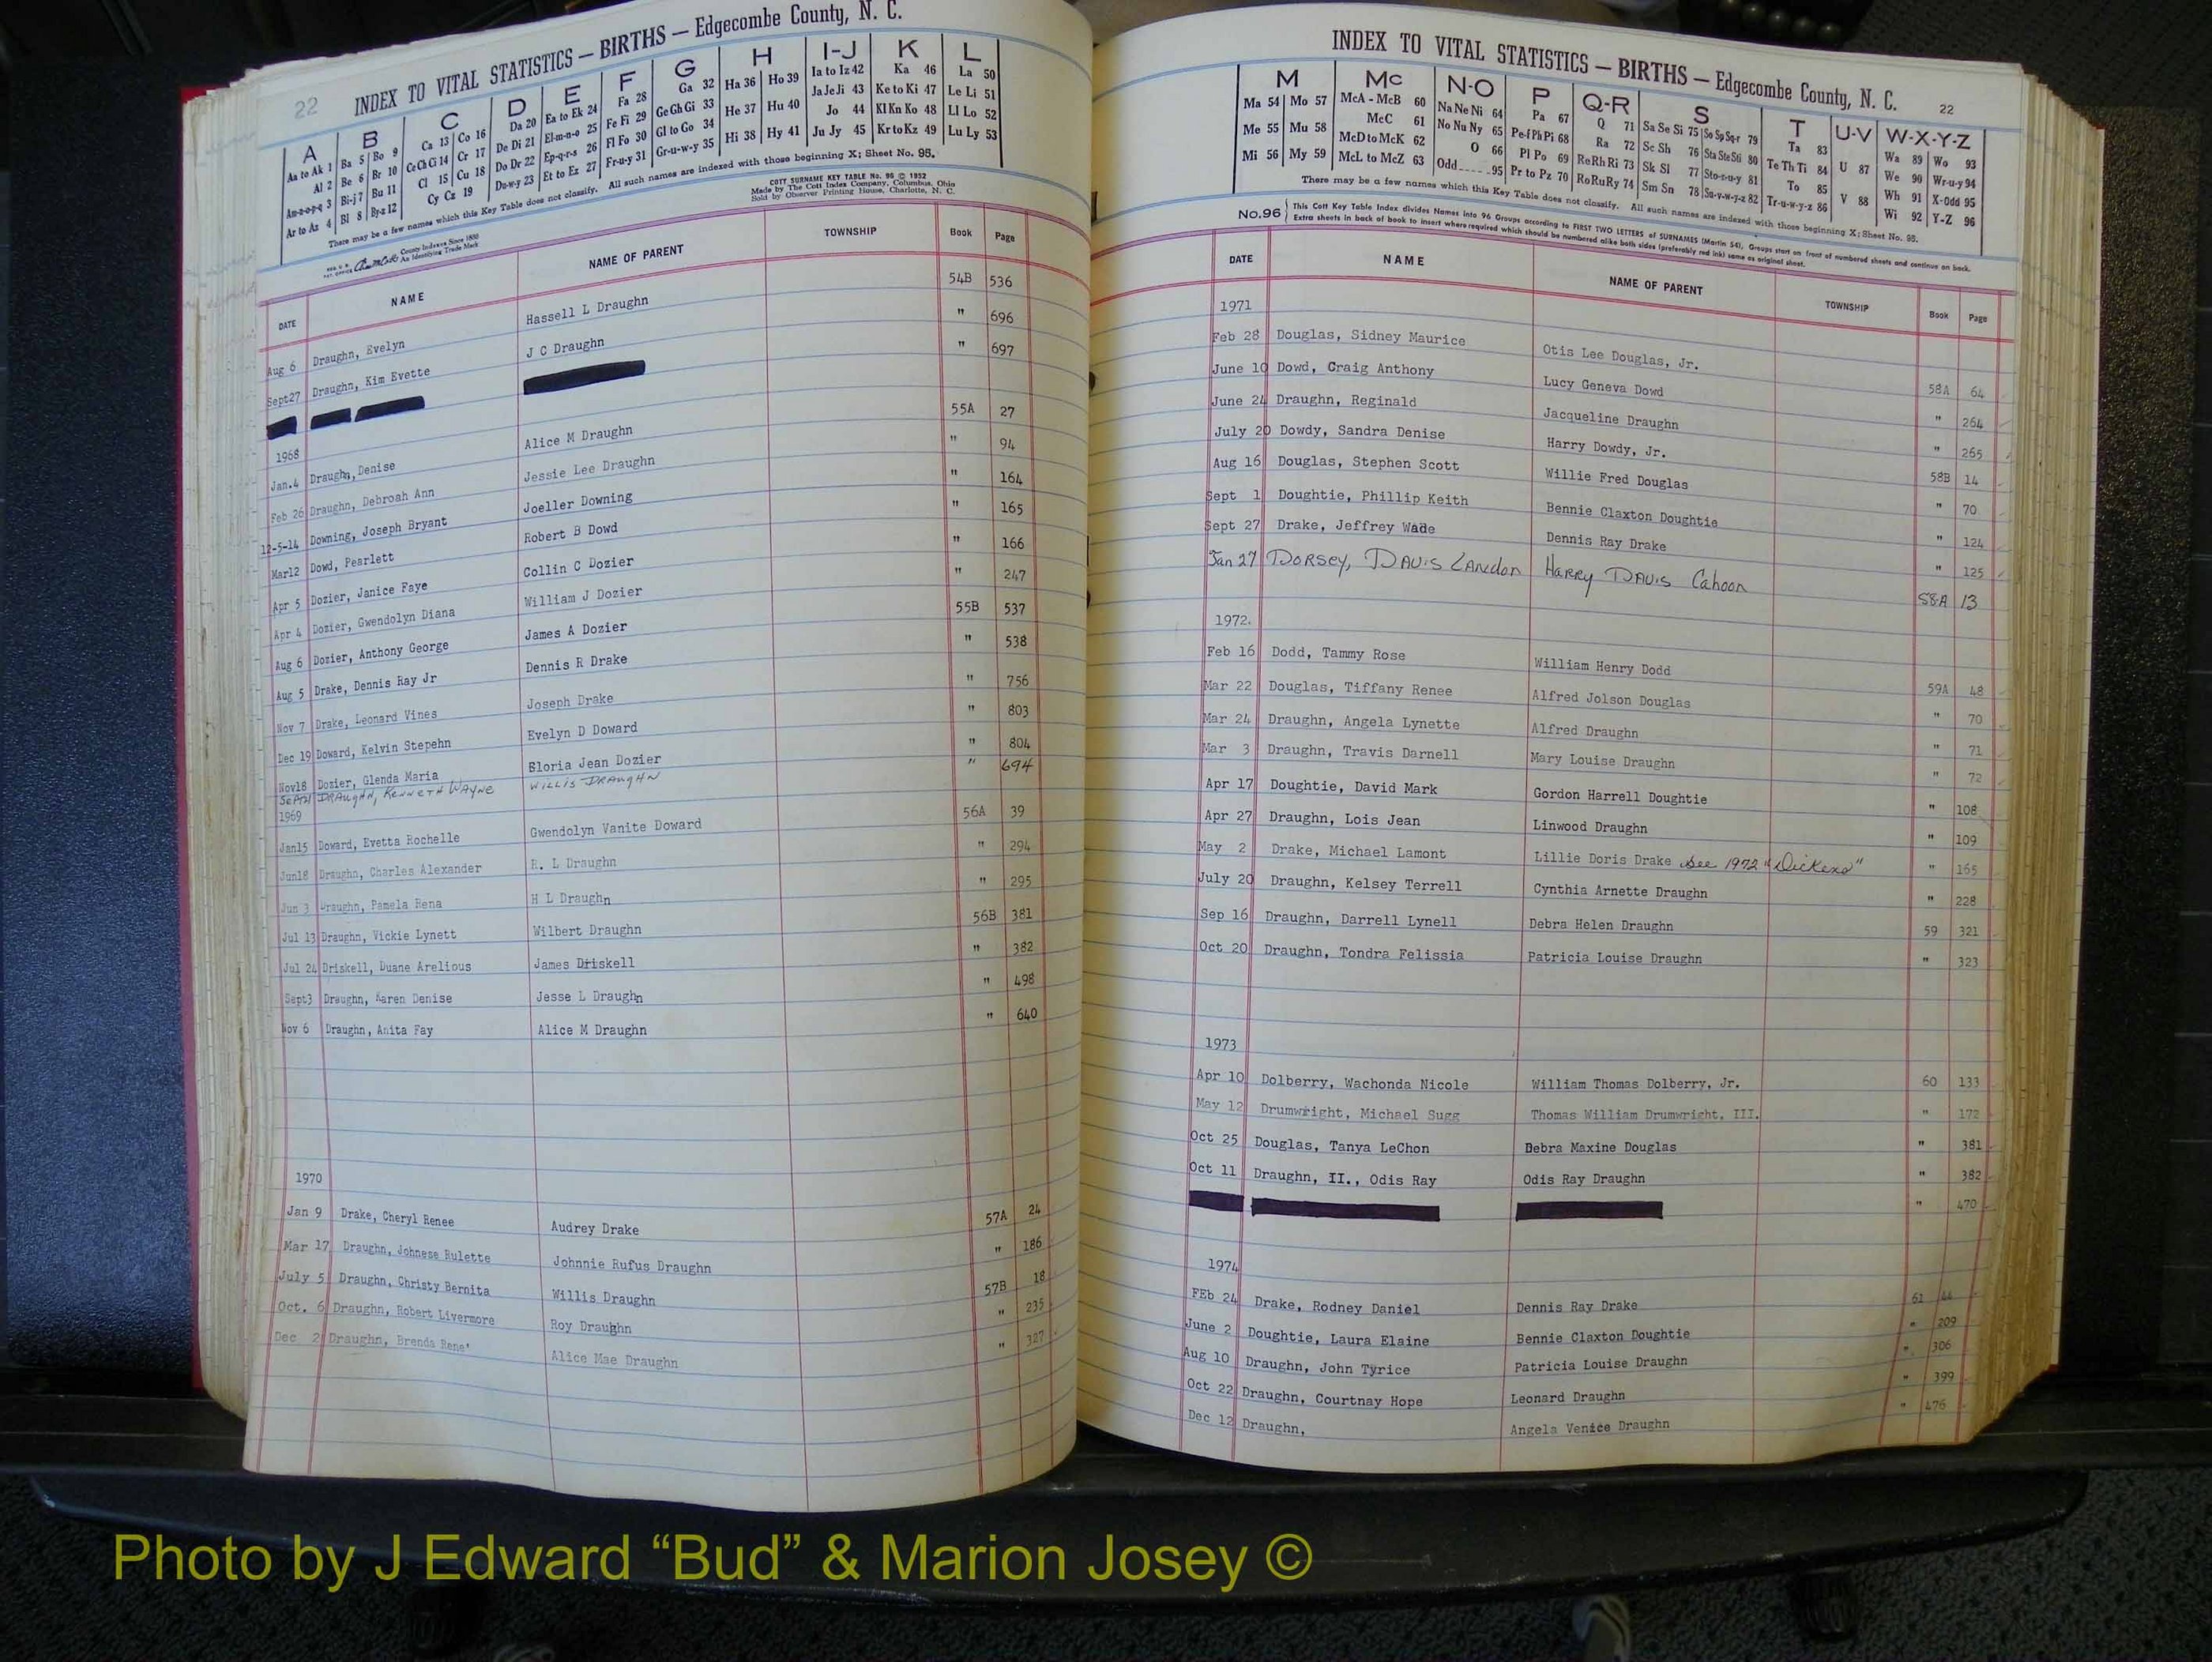 22 INDEX TO VITAL STATISTICS — BIRTHS — Edgecombe County, N. C.
A B C D E F G H I-J K L
Aa to Ak 1 Ba 5 Bo 9 Ca 13 Co 16 Da 20 Ea to Ek 24 Fa 28 Ga 32 Ha 36 Ho 39 Ia to Iz 42 Ka 46 La 50
Al 2 Be 6 Br 10 Ce Ch Ci 14 Cr 17 De Di 21 El-m-n-o 25 Fe Fi 29 Ge Gh Gi 33 He 37 Hu 40 Ja Je Ji 43 Ke to Ki 47 Le Li 51
Am-n-o-p-q 3 Bi-j 7 Bu 11 Cl 15 Cu 18 Do Dr 22 Ep-q-r-s 26 Fl Fo 30 Gl to Go 34 Hi 38 Hy 41 Jo 44 Kl Kn Ko 48 Ll Lo 52
Ar to Az 4 Bl 8 By-z 12 Cy Cz 19 Du-w-y 23 Et to Ez 27 Fr-u-y 31 Gr-u-w-y 35 Ju Jy 45 Kr to Kz 49 Lu Ly 53
There may be a few names which this Key Table does not classify. All such names are indexed with those beginning X; Sheet No. 95.
COTT SURNAME KEY TABLE No. 96 © 1952
Made by The Cott Index Company, Columbus, Ohio
Sold by Observer Printing House, Charlotte, N. C.
County Indexes Since 1888
An Identifying Trade Mark
DATE NAME NAME OF PARENT TOWNSHIP Book Page
Aug 6 Draughn, Evelyn Hassell L Draughn 54B 536
Sept27 Draughn, Kim Evette J C Draughn " 696
" 697
1968
Jan.4 Draughn,Denise Alice M Draughn 55A 27
Feb 26 Draughn, Debroah Ann Jessie Lee Draughn " 94
12-5-14 Downing, Joseph Bryant Joeller Downing " 164
Mar12 Dowd, Pearlett Robert B Dowd " 165
Apr 5 Dozier, Janice Faye Collin C Dozier " 166
Apr 4 Dozier, Gwendolyn Diana William J Dozier " 247
Aug 6 Dozier, Anthony George James A Dozier 55B 537
Aug 5 Drake, Dennis Ray Jr Dennis R Drake " 538
Nov 7 Drake, Leonard Vines Joseph Drake " 756
Dec 19 Doward, Kelvin Stepehn Evelyn D Doward " 803
Nov18 Dozier, Glenda Maria Eloria Jean Dozier " 804
DRAUGHN, KENNETH WAYNE WILLIS DRAUGHN " 694
1969
Jan15 Doward, Evetta Rochelle Gwendolyn Vanite Doward 56A 39
Jun18 Draughn, Charles Alexander R. L Draughn " 294
Jun 3 Draughn, Pamela Rena H L Draughn " 295
Jul 13 Draughn, Vickie Lynett Wilbert Draughn 56B 381
Jul 24 Driskell, Duane Arelious James Driskell " 382
Sept3 Draughn, Karen Denise Jesse L Draughn " 498
Nov 6 Draughn, Anita Fay Alice M Draughn " 640
1970
Jan 9 Drake, Cheryl Renee Audrey Drake 57A 24
Mar 17 Draughn, Johnese Rulette Johnnie Rufus Draughn " 186
July 5 Draughn, Christy Bernita Willis Draughn 57B 18
Oct. 6 Draughn, Robert Livermore Roy Draughn " 235
Dec 2 Draughn, Brenda Rene' Alice Mae Draughn " 327
INDEX TO VITAL STATISTICS — BIRTHS — Edgecombe County, N. C. 22
M Mc N-O P Q-R S T U-V W-X-Y-Z
Ma 54 Mo 57 McA - McB 60 Na Ne Ni 64 Pa 67 Q 71 Sa Se Si 75 So Sp Sq-r 79 Ta 83 U 87 Wa 89 Wo 93
Me 55 Mu 58 McC 61 No Nu Ny 65 Pe-f Ph Pi 68 Ra 72 Sc Sh 76 Sta Ste Sti 80 Te Th Ti 84 V 88 We 90 Wr-u-y 94
Mi 56 My 59 McD to McK 62 O 66 Pl Po 69 Re Rh Ri 73 Sk Sl 77 Sto-r-u-y 81 To 85 Wh 91 X-Odd 95
McL to McZ 63 Odd 95 Pr to Pz 70 Ro Ru Ry 74 Sm Sn 78 Su-v-w-y-z 82 Tr-u-w-y-z 86 Wi 92 Y-Z 96
There may be a few names which this Key Table does not classify. All such names are indexed with those beginning X; Sheet No. 95.
No.96 This Cott Key Table Index divides Names into 96 Groups according to FIRST TWO LETTERS of SURNAMES (Martin 54), Groups start on front of numbered sheets and continue on back.
Extra sheets in back of book to insert where required which should be numbered alike both sides (preferably red ink) same as original sheet.
DATE NAME NAME OF PARENT TOWNSHIP Book Page
1971
Feb 28 Douglas, Sidney Maurice Otis Lee Douglas, Jr. 58A 64
June 10 Dowd, Craig Anthony Lucy Geneva Dowd " 264
June 24 Draughn, Reginald Jacqueline Draughn " 265
July 20 Dowdy, Sandra Denise Harry Dowdy, Jr. 58B 14
Aug 16 Douglas, Stephen Scott Willie Fred Douglas " 70
Sept 1 Doughtie, Phillip Keith Bennie Claxton Doughtie " 124
Sept 27 Drake, Jeffrey Wade Dennis Ray Drake " 125
Jan 27 DORSEY, DAVIS LANDON HARRY DAVIS Cahoon 58-A 13
1972.
Feb 16 Dodd, Tammy Rose William Henry Dodd 59A 48
Mar 22 Douglas, Tiffany Renee Alfred Jolson Douglas " 70
Mar 24 Draughn, Angela Lynette Alfred Draughn " 71
Mar 3 Draughn, Travis Darnell Mary Louise Draughn " 72
Apr 17 Doughtie, David Mark Gordon Harrell Doughtie " 108
Apr 27 Draughn, Lois Jean Linwood Draughn " 109
May 2 Drake, Michael Lamont Lillie Doris Drake See 1972 "Dickens" " 165
July 20 Draughn, Kelsey Terrell Cynthia Arnette Draughn " 228
Sep 16 Draughn, Darrell Lynell Debra Helen Draughn 59 321
Oct 20 Draughn, Tondra Felissia Patricia Louise Draughn " 323
1973
Apr 10 Dolberry, Wachonda Nicole William Thomas Dolberry, Jr. 60 133
May 12 Drumwright, Michael Sugg Thomas William Drumwright, III. " 172
Oct 25 Douglas, Tanya LeChon Debra Maxine Douglas " 381
Oct 11 Draughn, II., Odis Ray Odis Ray Draughn " 382
" 470
1974
FEb 24 Drake, Rodney Daniel Dennis Ray Drake 61 44
June 2 Doughtie, Laura Elaine Bennie Claxton Doughtie " 209
Aug 10 Draughn, John Tyrice Patricia Louise Draughn " 306
Oct 22 Draughn, Courtnay Hope Leonard Draughn " 399
Dec 12 Draughn, Angela Venice Draughn " 476
Photo by J Edward “Bud” & Marion Josey ©